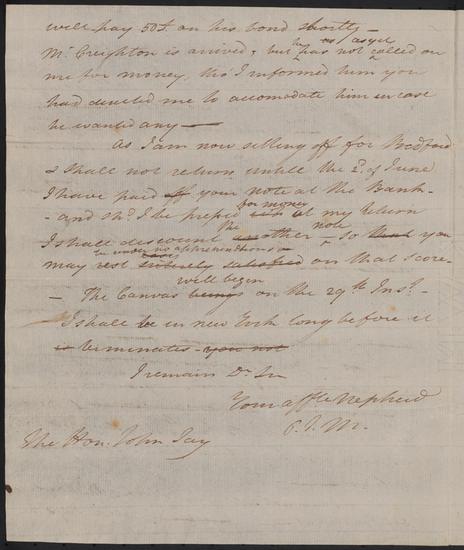 will pay 50£ on his bond shortly —
Mr Creighton is arrived & but he has not as yet called on
me for money, tho I informed him you
had directed me to accomodate him in case
he wanted any —
As I am now setting off for Bedford
& shall not return until the 2d. of June
I have paid off your note at the Bank -
- and shd. I be for money at my return
I shall discount the other note - so that you
may rest be under no apprehensions entirely satisfied on that score -
- The Canvas will begin begins on the 29th Inst.
I shall be in new York long before it
is terminates - you not
I remain Dr Sir
Your affte Nephew
P. J. M.
The Hon. John Jay